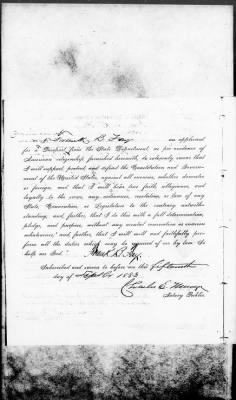 I, Frank B. Fay an applicant
for a Passport from the State Department, as per evidence of
American citizenship furnished herewith, do solemnly swear that
I will support, protect, and defend the Constitution and Govern-
ment of the United States, against all enemies, whether domestic
or foreign; and that I will bear true faith, allegiance, and
loyalty to the same, any ordinance, resolution, or law of any
State, Convention, or Legislature to the contrary notwith-
standing; and further, that I do this with a full determination,
pledge, and purpose, without any mental reservation or evasion
whatsoever; and further, that I will well and faithfully per-
form all the duties which may be required of me by law. So
help me God.
Frank B. Fay
Subscribed and sworn to before me this fifteenth
day of Sept 1883
Charles
Notary Public.